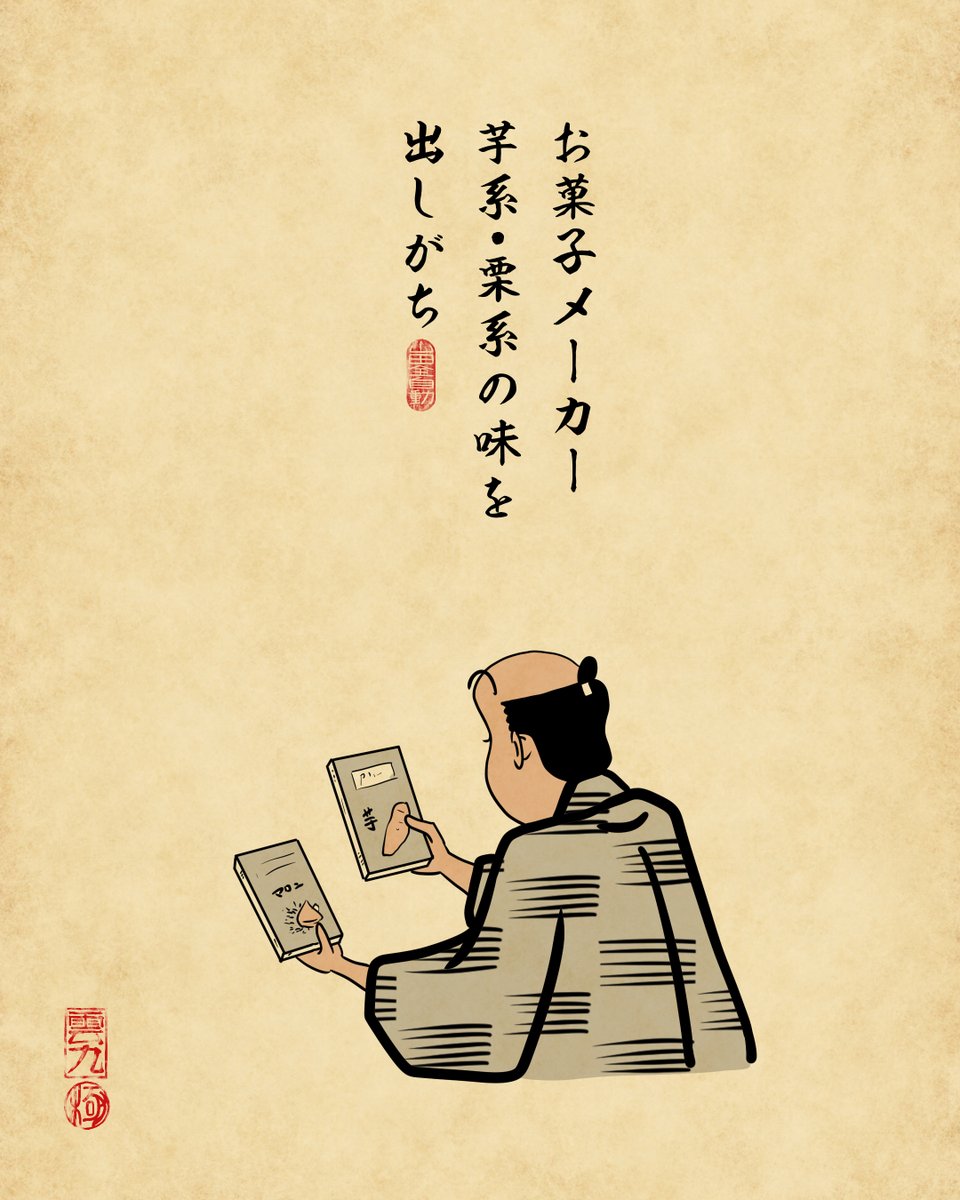 お菓子メーカー
芋系・栗系の味を
出しがち
芋
マロン